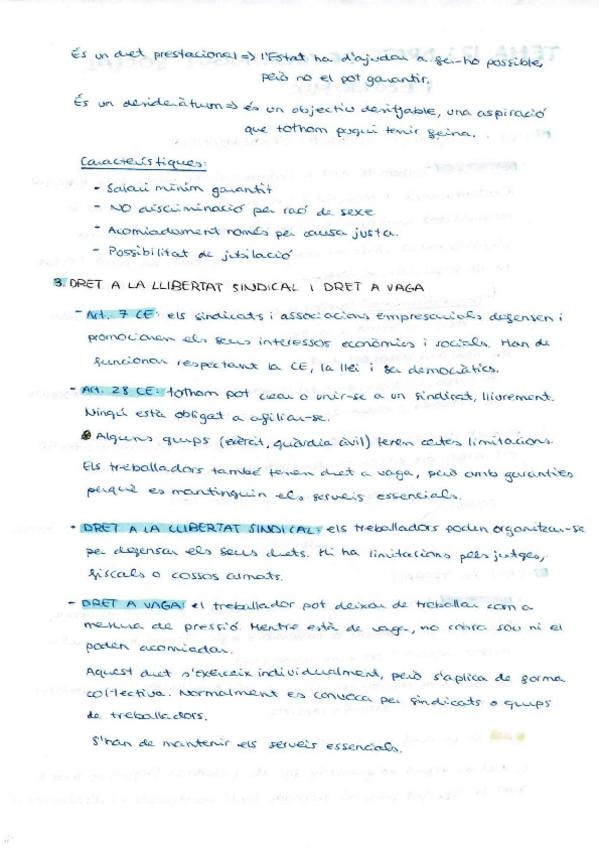 És un dret prestacional => l'Estat ha d'ajudar a fer-ho possible,
però no el pot garantir.
És un desideràtum => és un objectiu desitjable, una aspiració
que tothom pugui tenir feina.
Característiques:
- Salari mínim garantit
- NO discriminació per raó de sexe
- Acomiadament només per causa justa.
- Possibilitat de jubilació
3. DRET A LA LLIBERTAT SINDICAL I DRET A VAGA
- Art. 7 CE: els sindicats i associacions empresarials defensen i
promocionen els seus interessos econòmics i socials. Han de
funcionar respectant la CE, la llei i ser democràtics.
- Art. 28 CE: tothom pot crear o unir-se a un sindicat, lliurement.
Ningú està obligat a afiliar-se.
Alguns grups (exèrcit, guàrdia civil) tenen certes limitacions.
Els treballadors també tenen dret a vaga, però amb garanties
perquè es mantinguin els serveis essencials.
- DRET A LA LLIBERTAT SINDICAL: els treballadors poden organitzar-se
per defensar els seus drets. Hi ha limitacions pels jutges,
fiscals o cossos armats.
- DRET A VAGA: el treballador pot deixar de treballar com a
mesura de pressió. Mentre està de vaga, no cobra sou ni el
poden acomiadar.
Aquest dret s'exerceix individualment, però s'aplica de forma
col·lectiva. Normalment es convoca per sindicats o grups
de treballadors.
S'han de mantenir els serveis essencials.